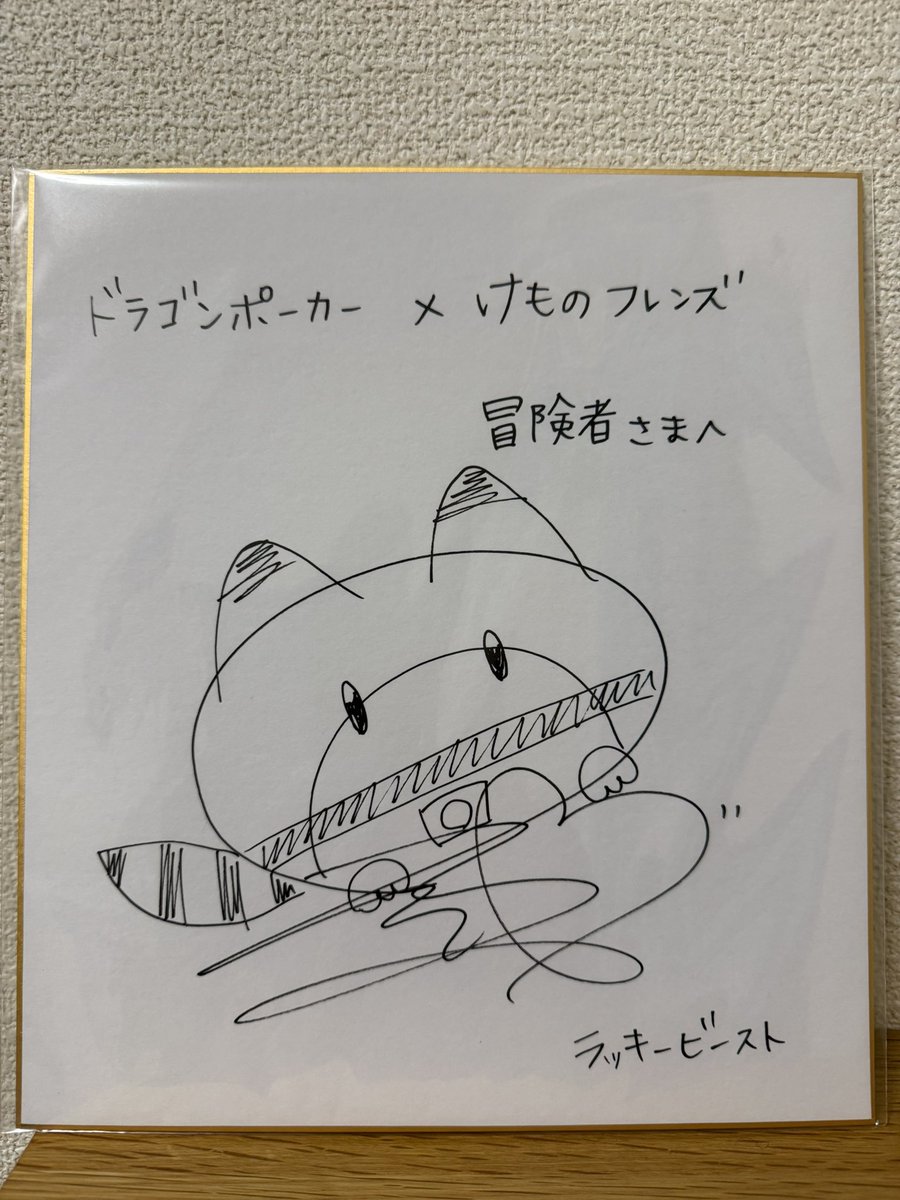 ドラゴンポーカー × けものフレンズ
冒険者さまへ
ラッキービースト